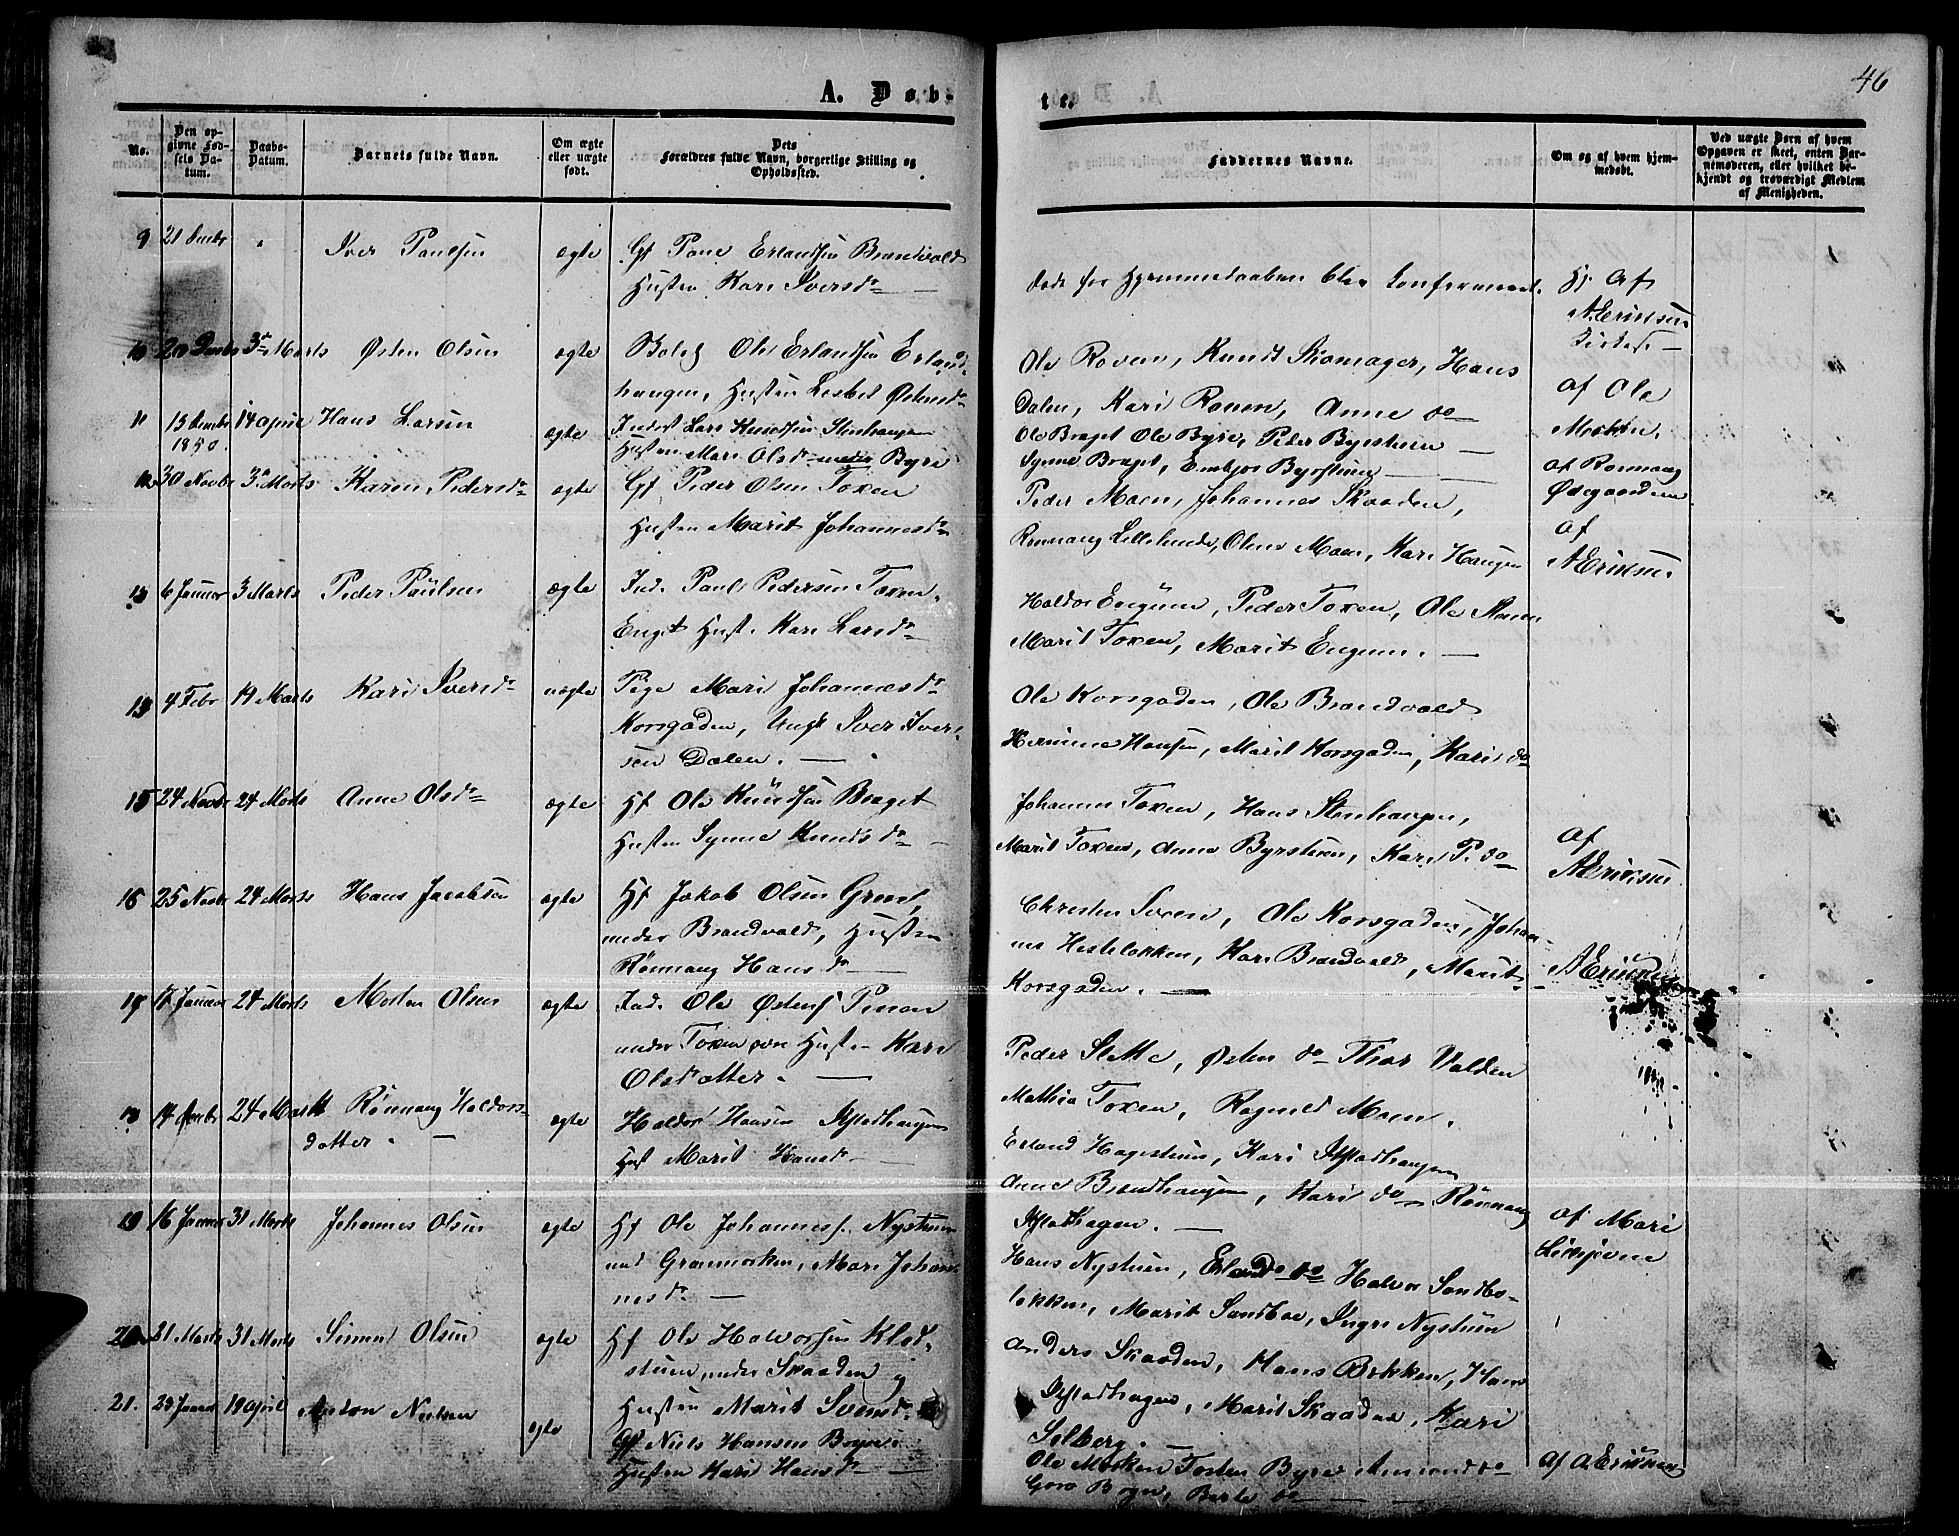 46
A. Døb-
te.
No.
Den opgivne Fødsels Datum.
Daabs-Datum.
Barnets fulde Navn.
Om ægte eller uægte født.
Dets Forældres fulde Navn, borgerlige Stilling og Opholdssted.
Faddernes Navne.
Om og af hvem hjemmedøbt.
Ved uægte Børn af hvem Opgaven er skeet, enten Barnemoderen, eller hvilket bekjendt og troværdigt Medlem af Menigheden.
9 21 Decbr " Iver Paulsen ægte Gf Poul Erlandsen Brandvold
Husten Kari Iversdr
døde før Hjemmedaaben blev konfirmeret.
Hj af
A Eriksen
10 20 Decbr 3die Marts Østen Olsen ægte Bolef Ole Erlandsen Erlands-
haugen, Husten Lisbet Østensdr
Ole Roven, Knudt Skomager, Hans
Dalen, Kari Roven, Anne do
af Ole
Morken.
11 13 Decbr 1850. 14 April Hans Larsen ægte Inderst Lars Knudsen Stenhaugen
Husten Mari Olsdr under Byre
Ole Braget Ole Byre, Peder Byrstuen
Synne Braget, Embjør Byrstuen
af Rønnaug
Ødegaarden
12 30 Novbr 3 Marts Karen Pedersdr ægte Gf Peder Olsen Toxen
Husten Marit Johannesdr
Peder Moen, Johannes Skaaden,
Rønnaug Lillelunde, Olene Moen, Kari Haugen
af
A Eriksen
13 6 Januar 3 Marts Peder Paulsen ægte Ind. Paul Pedersen Toxen
Enget Hust. Kari Larsdr
Haldor Engum, Peder Toxen, Ole
Marit Toxen, Marit Engum.
4 Febr 19 Marts Kari Iversdr uægte Pige Mari Johannesdr
Korsgaden, Ungk Iver Iver-
sen Dalen.
Ole Korsgaden, Ole Brandvold
Hermine Hansen, Marit Korsgaden, Kari do
15 24 Novbr 24 Marts Anne Olsdr ægte Hf Ole Knudsen Braget
Husten Synne Knudsdr
Johannes Toxen, Hans Stenhaugen,
Marit Toxen, Anne Byrstuen, Kari P. do
af
A Eriksen
16 25 Novbr 24 Marts Hans Jacobsen ægte Hf Jakob Olsen
under Brandvold, Husten
Rønnaug Hansdr
Christen Sveen, Ole Korsgaden, Johan-
ne Hesteløkken, Kari Brandvold, Marit
Korsgaden.
A Eriksen
17 Januar 24 Marts Morten Olsen ægte Ind. Ole Østens
under Toxen øvre Husten Kari
Olsdatter.
Peder Slette, Østen do Thor Volden
Mathia Toxen, Ragnild Moen.
14 Decbr 24 Marts Rønnaug Haldors-
datter. ægte Haldor Hansen Kjstadhaugen
Hust Marit Hansdr
Erland Hagestuen, Kari Kjstadhaugen
Anne Brandhaugen, Kari do Rønnaug
Kjstadhagen.
19 16 Januar 31 Marts Johannes Olsen ægte Hf Ole Johannes. Nystuen
und Graumorken, Mari Johan-
nesdr
Hans Nystuen, Erland do Halvor Sandbo-
løkken, Marit Sandboe, Ingri Nystuen
af Mari
20 21 Marts 31 Marts Simen Olsen ægte Hf Ole Halvorsen Klot-
stuen under Skaaden
Husten Marit Svensdr
Anders Skaaden, Hans Bekken, Hans
Kjstadhagen, Marit Skaaden, Kari
Selberg.
21. 23 Januar 19 April Anton Nielsen ægte Gf Niels Hansen
Husten Kari Hansdr
Ole Morken Tosten Byre Amund do
Goro, Berte do
af A Eriksen